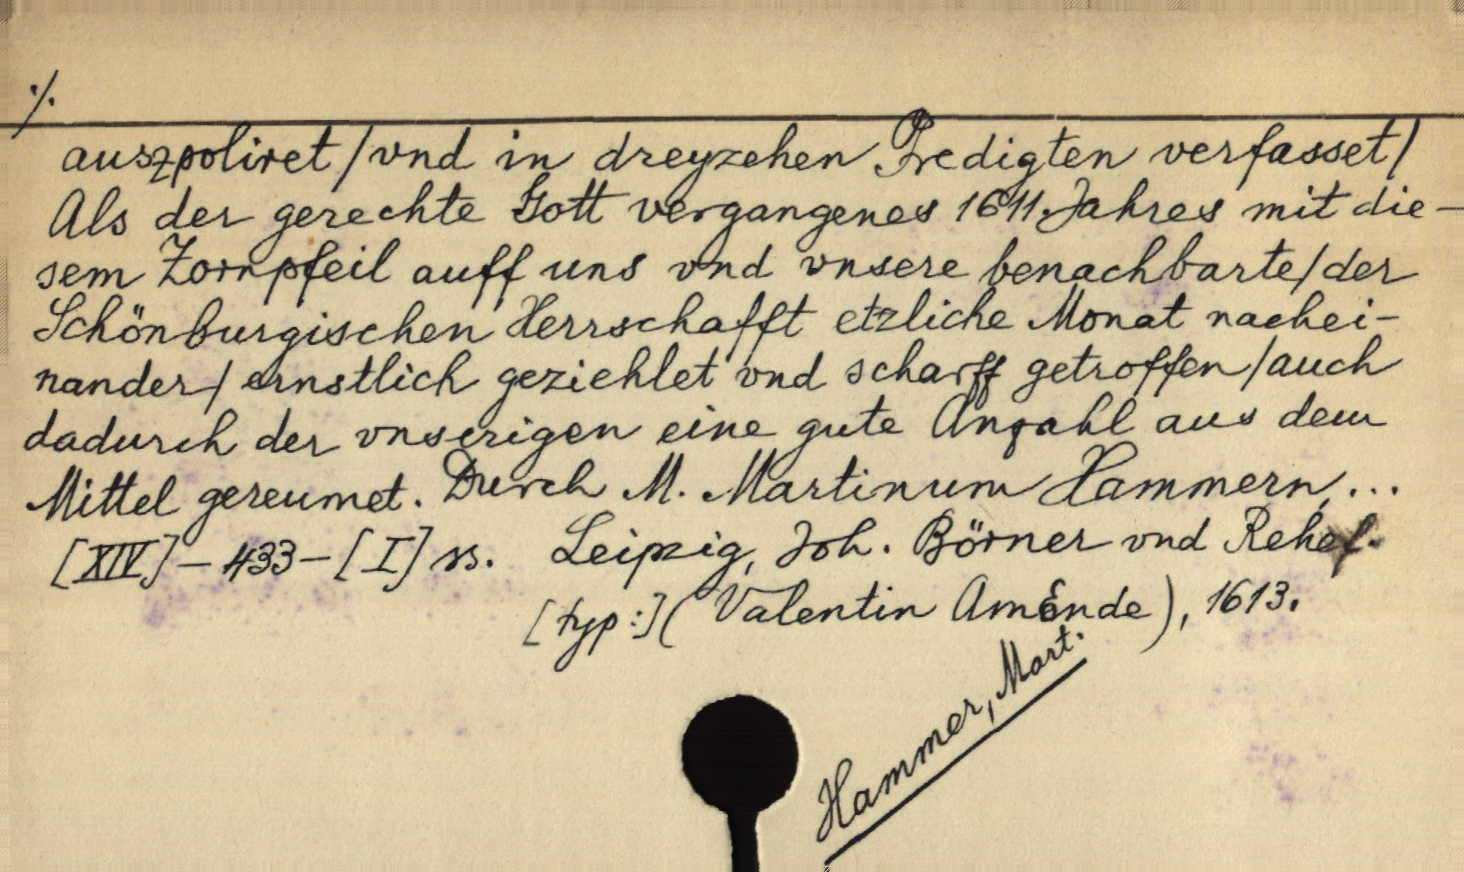 ./.
auszpoliret/vnd in dreyzehen Predigten verfasset/
Als der gerechte Gott vergangenes 1611. Jahres mit die-
sem Zornpfeil auff uns vnd vnsere benachbarte/der
Schönburgischen Herrschafft etzliche Monat nachei-
nander/ernstlich geziehlet vnd scharff getroffen/auch
dadurch der vnserigen eine gute Anzahl aus dem
Mittel gereumet. Durch M. Martinum Hammern, ...
[XIV]-433-[I] ss. Leipzig, Joh. Börner vnd Rehef.
[typ:](Valentin Amende), 1613.
Hammer, Mart.